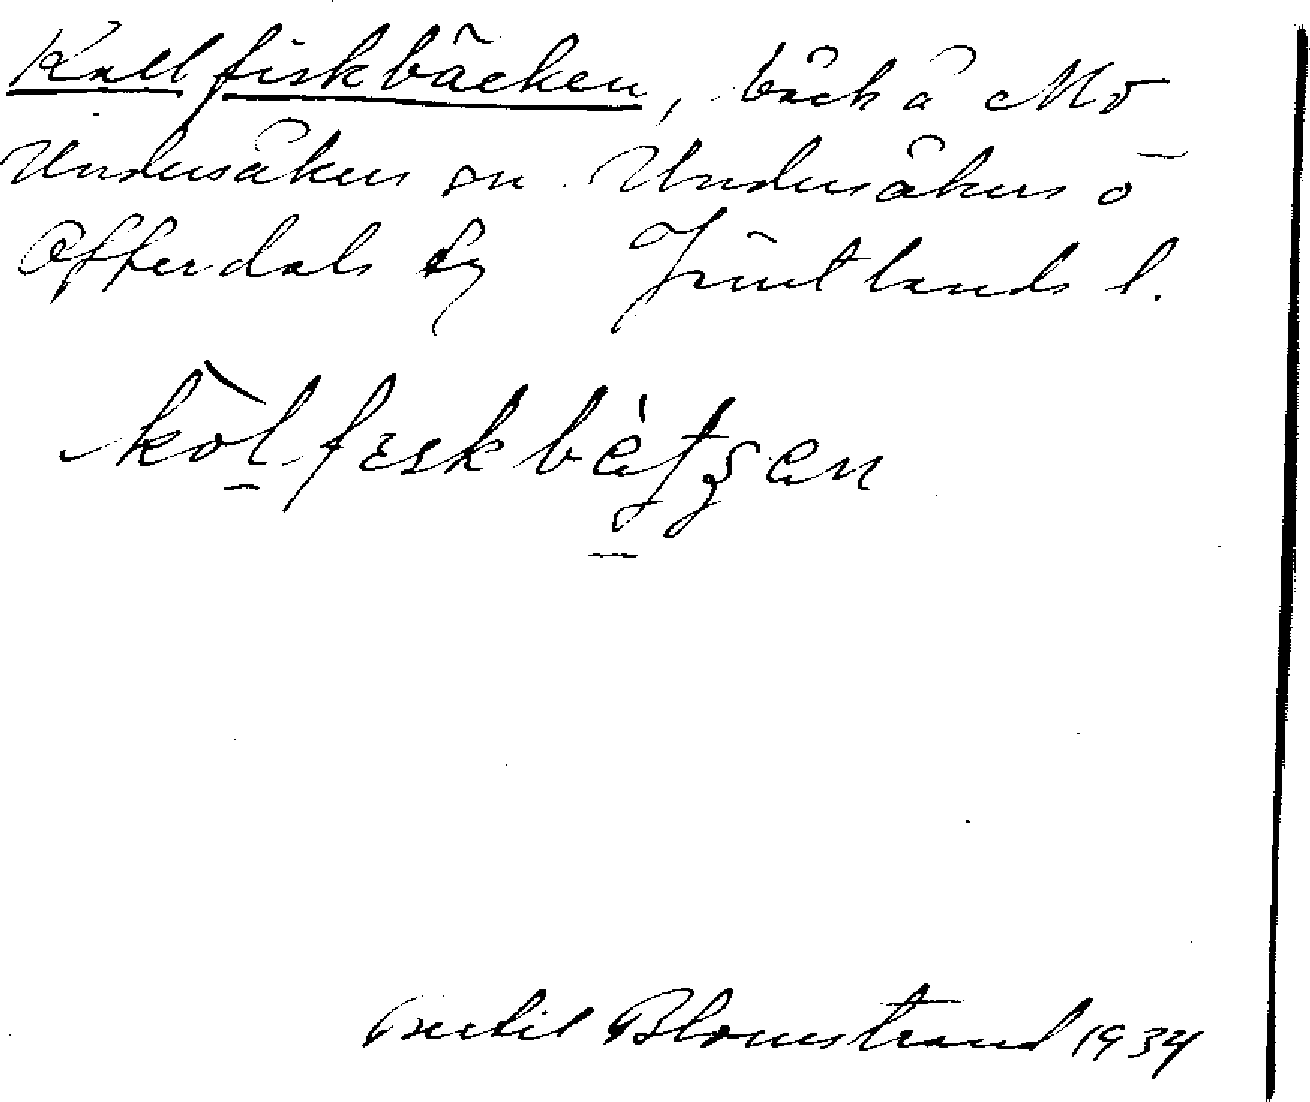 Kallfiskbäcken, bäck å Mo
Undersåkers sn Undersåkers o
Offerdals tg Jämtlands l.
kòlfɪskbètʂen
Bertil Blomstrand 1934